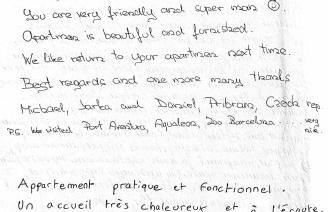 You are very friendly and super man ☺.
Apartmen is beautiful and furnished.
We like return to your apartmen next time.
Best regards and one more many thanks
Michael, Jarka and Daniel, Pribram, Czech rep
P.S. We visited Port Aventura, Aqualeon, Zoo Barcelona .... very nice.
Appartement pratique et fonctionnel.
Un accueil très chaleureux et à l'écoute.